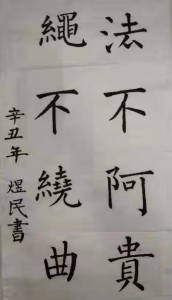 法不阿貴
繩不繞曲
辛丑年 煜民書